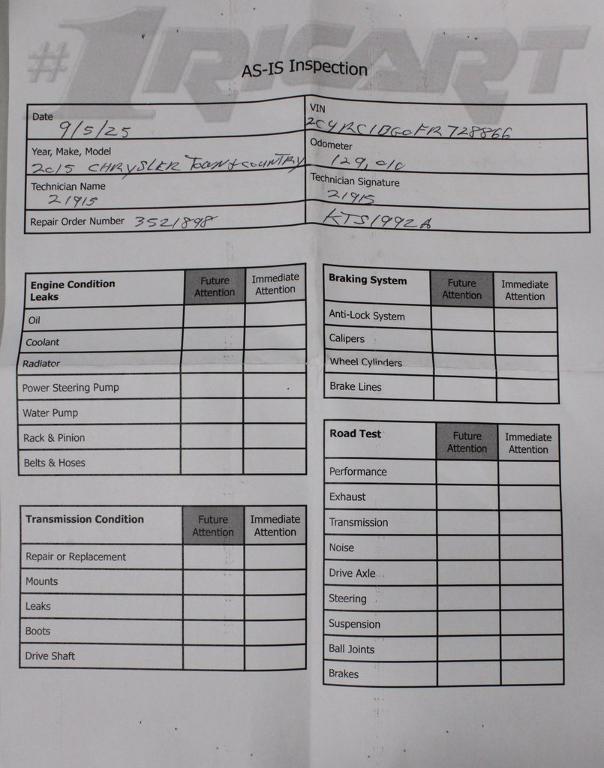 #1RICART
AS-IS Inspection
Date 9/5/25
VIN 2C4RC1BG0FR728866
Year, Make, Model 2015 CHRYSLER TOWN & COUNTRY
Odometer 129,010
Technician Name 21915
Technician Signature 21915
Repair Order Number 3521898
KTS1992A
Engine Condition Leaks Future Attention Immediate Attention
Oil
Coolant
Radiator
Power Steering Pump
Water Pump
Rack & Pinion
Belts & Hoses
Transmission Condition Future Attention Immediate Attention
Repair or Replacement
Mounts
Leaks
Boots
Drive Shaft
Braking System Future Attention Immediate Attention
Anti-Lock System
Calipers
Wheel Cylinders
Brake Lines
Road Test Future Attention Immediate Attention
Performance
Exhaust
Transmission
Noise
Drive Axle
Steering
Suspension
Ball Joints
Brakes